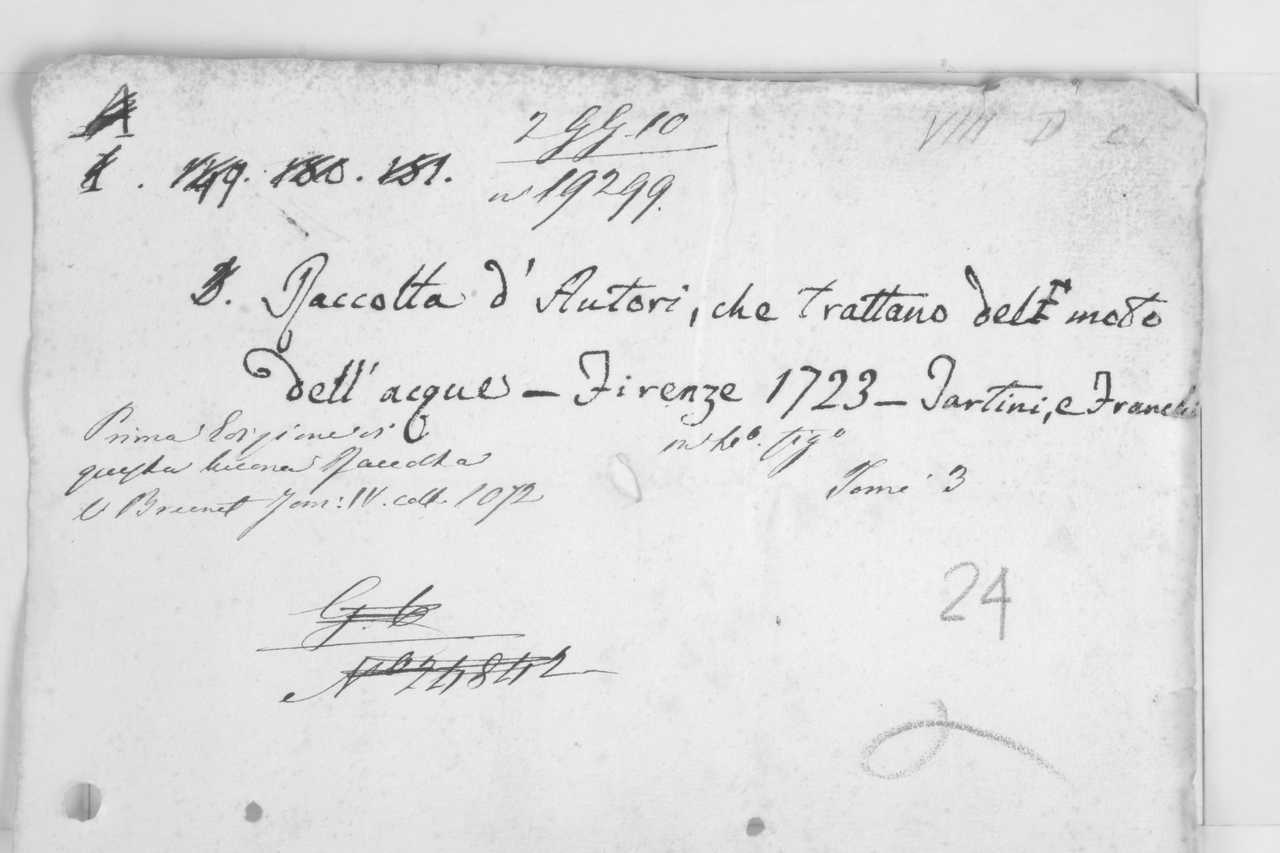 A
1. 149. 180. 181.
2 GG 10
n° 19299.
VIII D c.
D. Raccolta d' Autori, che trattano dell moto
dell' acque – Firenze 1723 – Tartini, e Franchi
Prima Edizione di
questa buona Raccolta
V Brunet Tom: IV. coll. 1072
in 4°. fig°
Tomi 3
G. 6
N° 24842
24